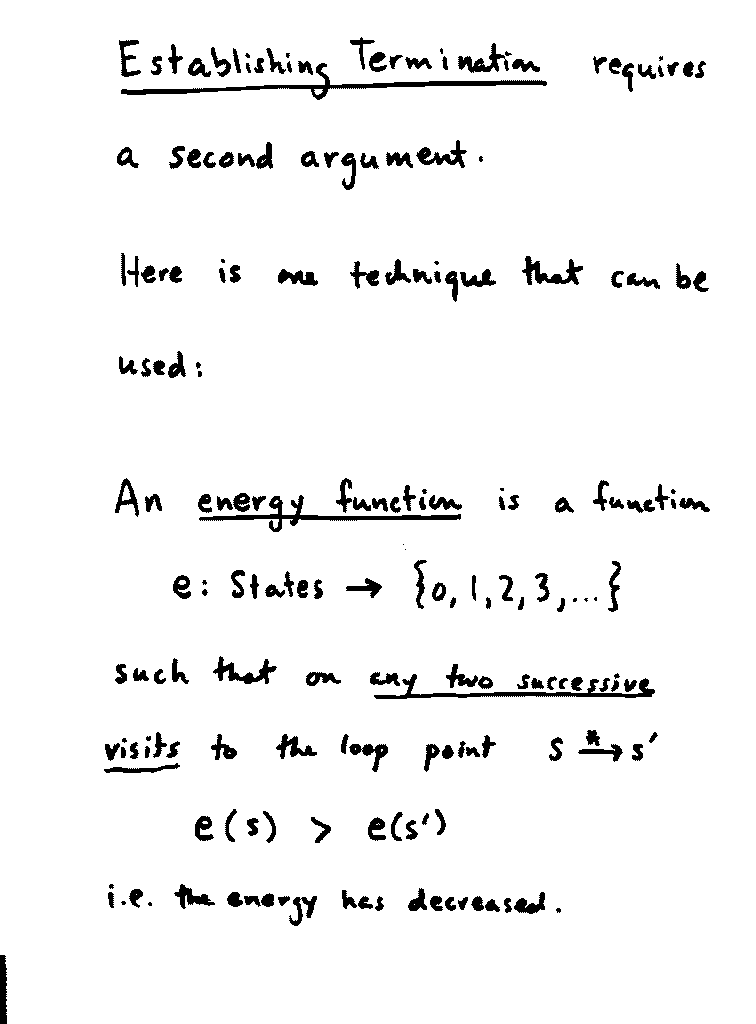 Establishing Termination requires
a second argument.
Here is one technique that can be
used:
An energy function is a function
e: States → {0, 1, 2, 3, ...}
such that on any two successive
visits to the loop point s *→ s'
e(s) > e(s')
i.e. the energy has decreased.